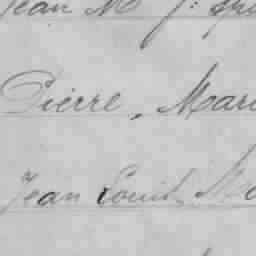 Jean M J:
Pierre, Mar
Jean Louis M